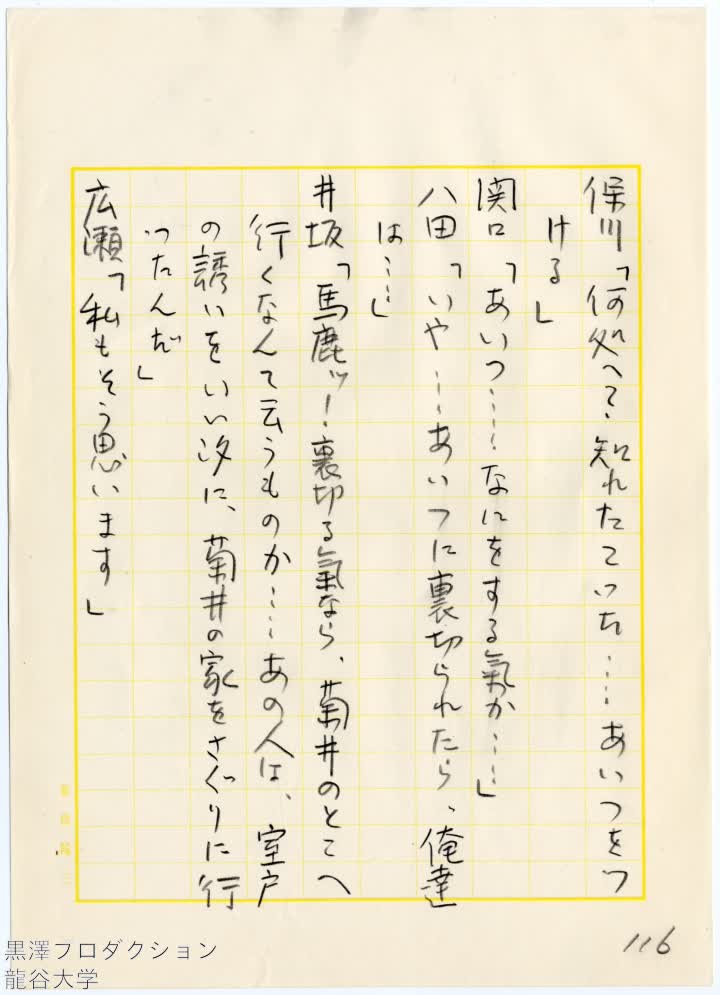 保川「何処へ？知れたていた‥‥あいつをつ
ける」
関口「あいつ‥‥なにをする氣か‥‥」
八田「いや‥‥あいつに裏切られたら、俺達
は‥‥」
井坂「馬鹿ッ！裏切る氣なら、菊井のとこへ
行くなんて云うものか‥‥あの人は、室戸
の誘いをいい汐に、菊井の家をさぐりに行
ったんだ」
広瀬「私もそう思います」
116
黒澤プロダクション
龍谷大学